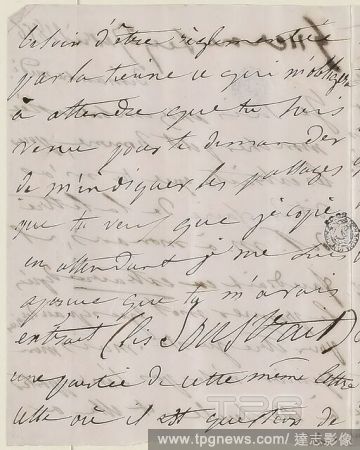 besoin d'être
par la tienne ce qui m'oblige
à attendre que tu sois
venue pour te demander
de m'indiquer les passages
que tu veux que je copie
en attendant je me suis
aperçue que tu m'avais
extrait (lis Soustrait)
une partie de cette même lettre
celle où il est question de
TPG
www.tpgnews.com/ 達志影像